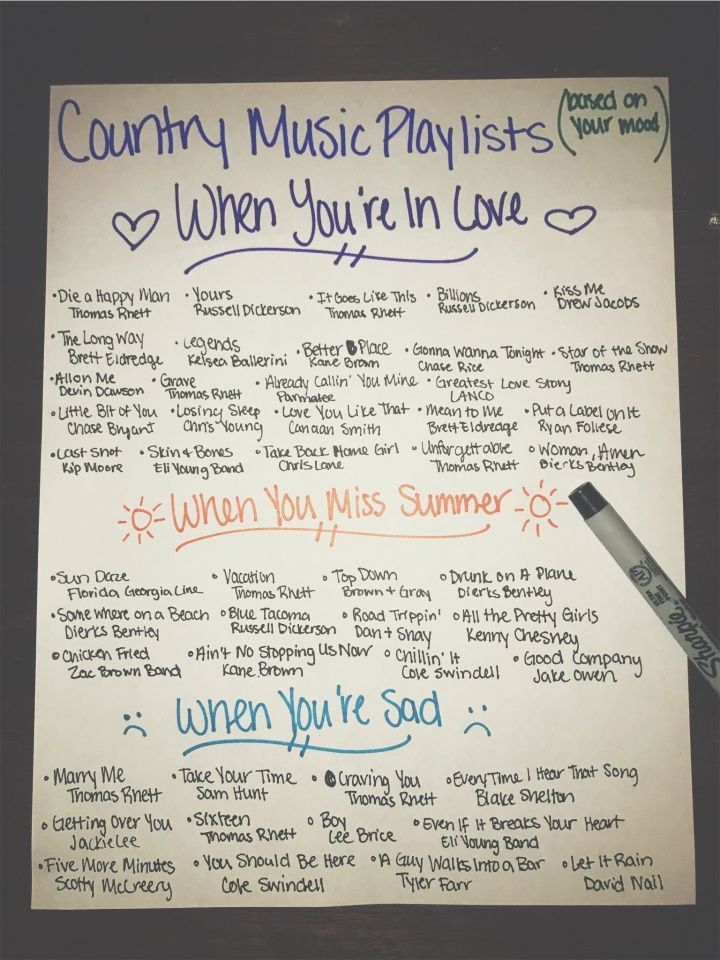 Country Music Playlists (based on your mood)
When You're In Love
•Die a Happy Man •Yours •It Goes Like This •Billions •Kiss Me
Thomas Rhett Russell Dickerson Thomas Rhett Russell Dickerson Drew Jacobs
•The Long Way •Legends •Better Place •Gonna Wanna Tonight •Star of the Show
Brett Eldredge Kelsea Ballerini Kane Brown Chase Rice Thomas Rhett
•All on Me •Grave •Already Callin' You Mine •Greatest Love Story
Devin Dawson Thomas Rhett Parmalee LANCO
•Little Bit of You •Losing Sleep •Love You Like That •Mean to Me •Put a Label on It
Chase Bryant Chris Young Canaan Smith Brett Eldredge Ryan Follese
•Last Shot •Skin & Bones •Take Back Home Girl •Unforgettable •Woman, Amen
Kip Moore Eli Young Band Chris Lane Thomas Rhett Dierks Bentley
When You Miss Summer
•Sun Daze •Vacation •Top Down •Drunk on A Plane
Florida Georgia Line Thomas Rhett Brown + Gray Dierks Bentley
•Some where on a Beach •Blue Tacoma •Road Trippin' •All the Pretty Girls
Dierks Bentley Russell Dickerson Dan + Shay Kenny Chesney
•Chicken Fried •Ain't No Stopping Us Now •Chillin' It •Good Company
Zac Brown Band Kane Brown Cole Swindell Jake Owen
When You're Sad
•Marry Me •Take Your Time •Craving You •Every Time I Hear That Song
Thomas Rhett Sam Hunt Thomas Rhett Blake Shelton
•Getting Over You •Sixteen •Boy •Even If It Breaks Your Heart
Jackie Lee Thomas Rhett Lee Brice Eli Young Band
•Five More Minutes •You Should Be Here •A Guy Walks Into a Bar •Let It Rain
Scotty McCreery Cole Swindell Tyler Farr David Nail
Sharpie